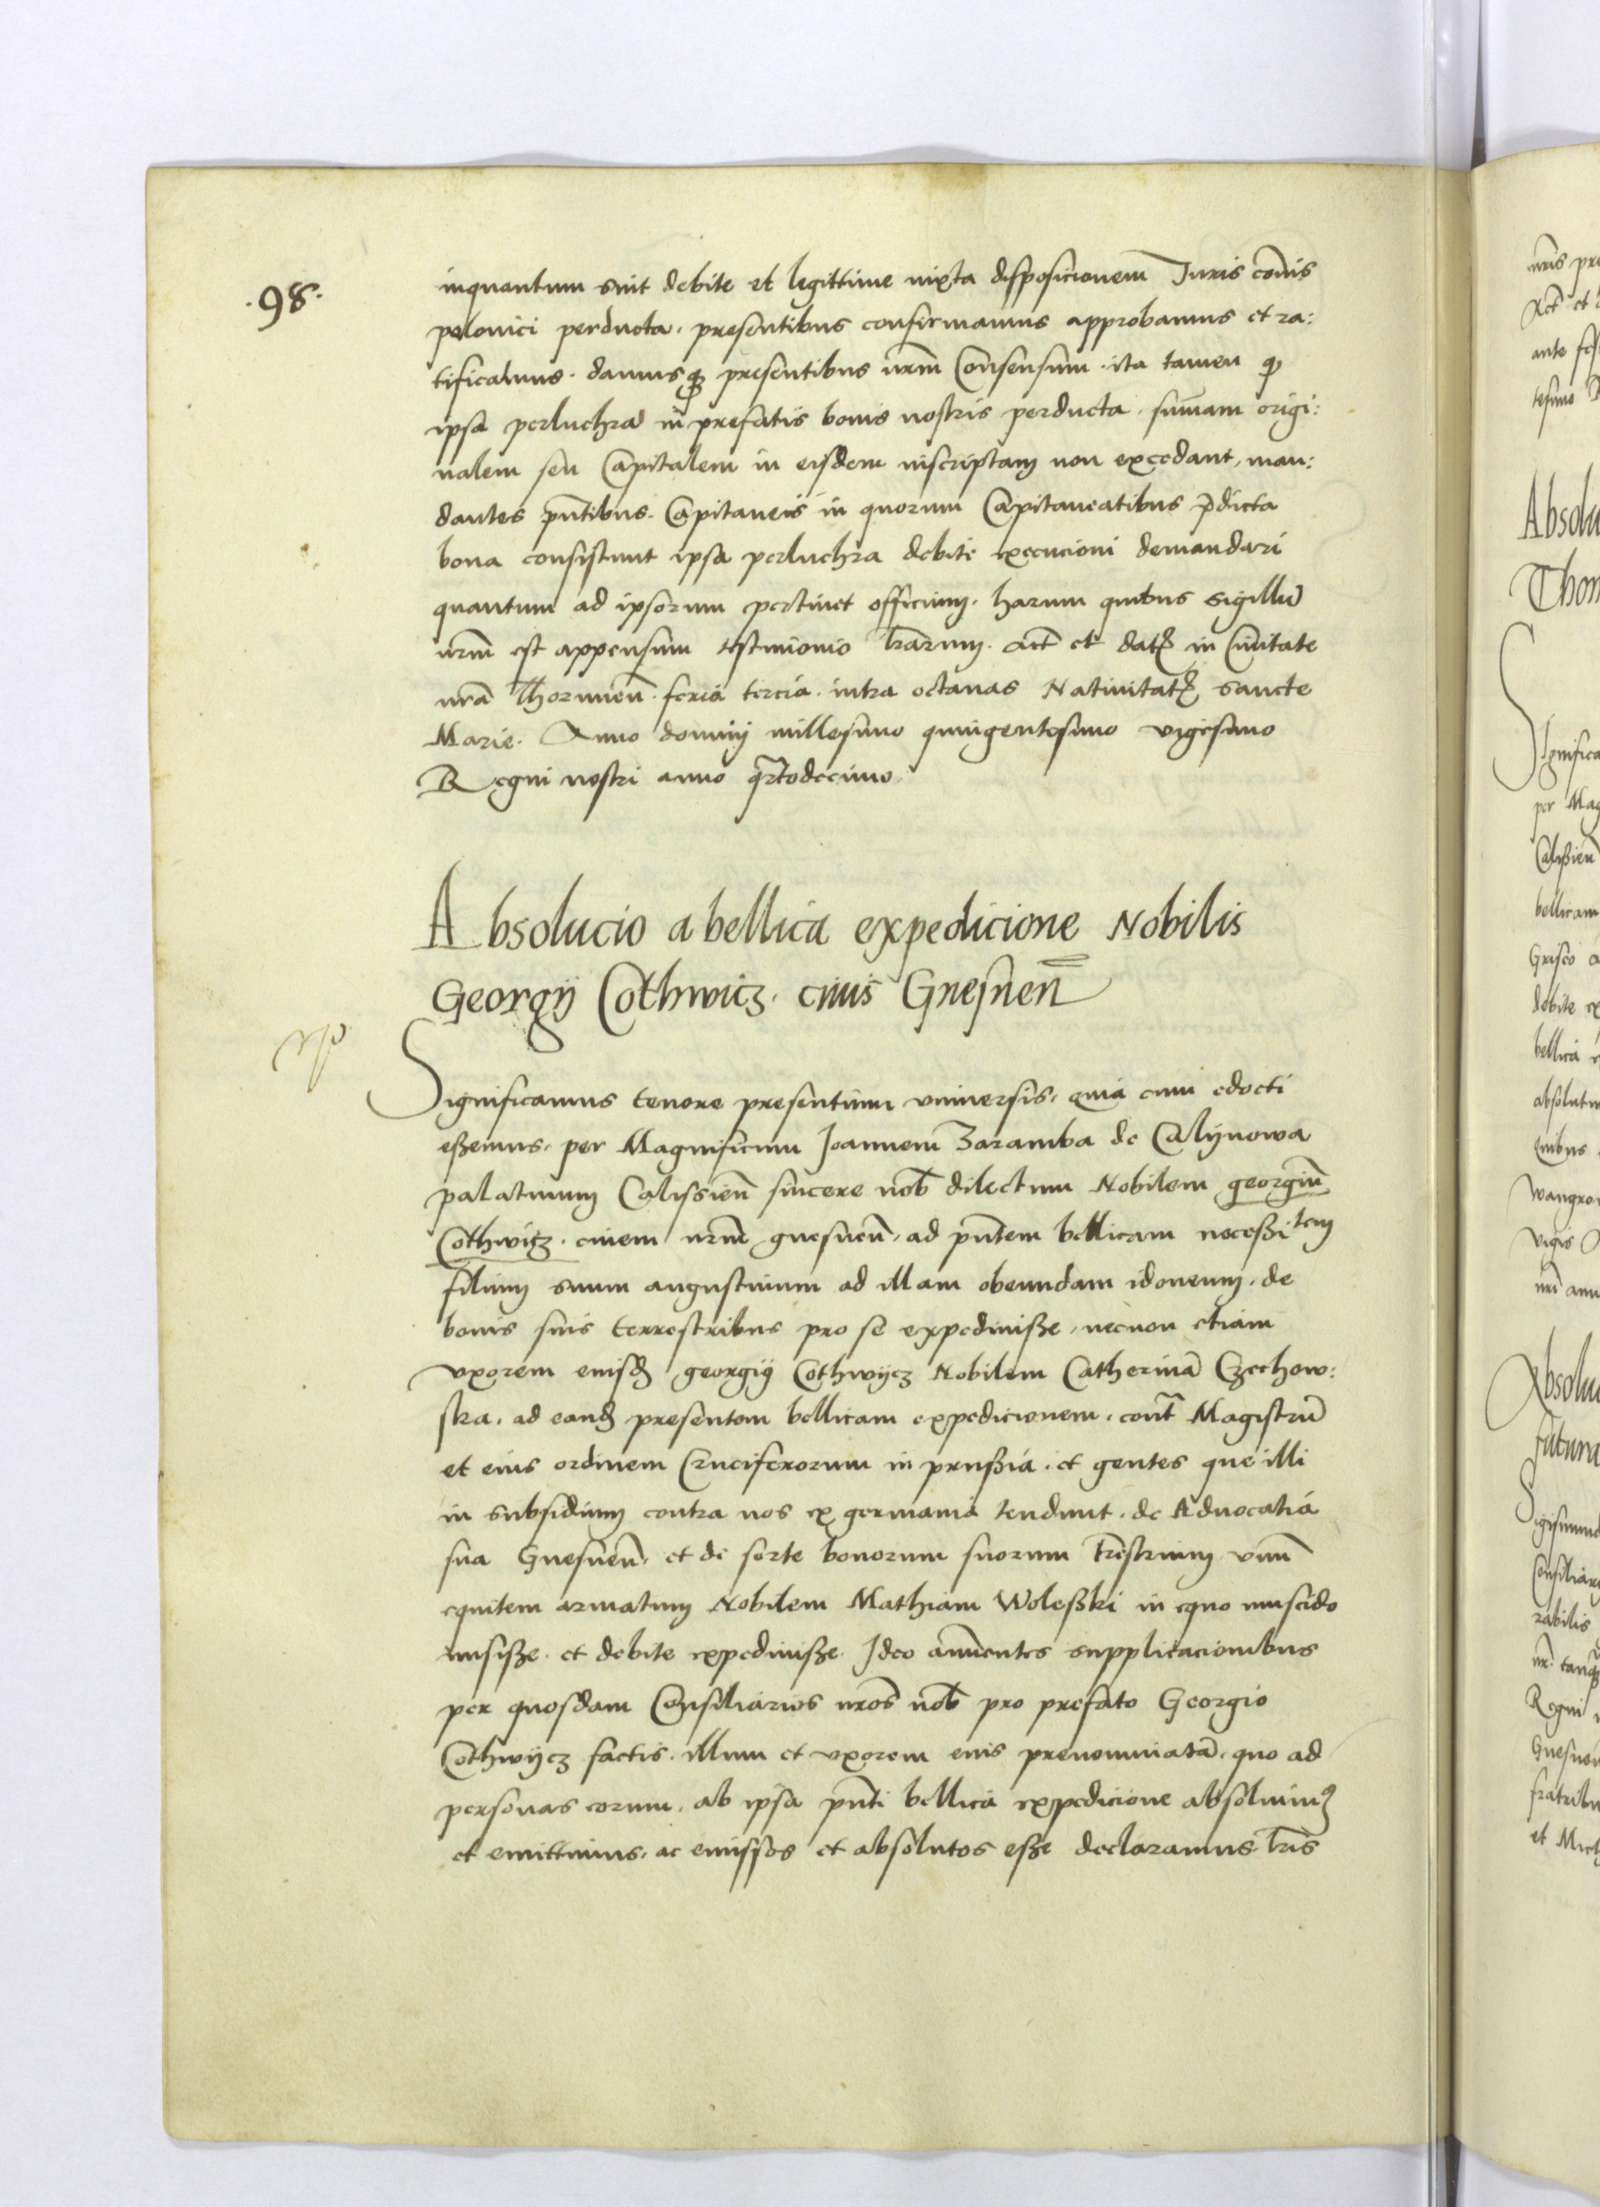 .98.
inquantum sint debite et legittime iuxta disposicionem Iuris cōnis
polonici perducta. presentibus confirmamus approbamus et ra:
tificamus. damusq; presentibus nrm̄ Consensum. ita tamen q
ipsa perluchra in prefatis bonis nostris perducta. sum̄am origi:
nalem seu Capitalem in eisdem inscriptam non excedant, man:
dantes pn̄tibus. Capitaneis in quorum Capitaneatibus p̄dicta
bona consistunt ipsa perluchra debite execucioni demandari
quantum ad ipsorum pertinet officium. harum quibus sigillū
nrm̄ est appensum testimonio lrārum. Act̄ et dat in Ciuitate
nrā Thorunen̄. feria tercia. intra octauas Natiuitat sancte
Marie. Anno dominj millesimo quingentesimo vigesimo
Regni nostri anno qrtodecimo.
Absolucio a bellica expedicione Nobilis
Georgij Cothwicz. ciuis Gnesnen̄
Significamus tenore presentium vniuersis. quia cum edocti
eßemus. per Magnificum Joannem Zaramba de Calynowa
palatinum Calissien̄ sincere nob̄ dilectum Nobilem georgiū
Cothwicz. ciuem nrm̄ gnesnen̄. ad pn̄tem bellicam neceßitem
filium suum augustinum ad illam obeundam idoneum. de
bonis suis terrestribus pro se expediuiße, necnon etiam
vxorem eiusd georgij Cothwijcz Nobilem Catherinā Czechow:
ska. ad eand presentem bellicam expedicionem. cont̄ Magistrū
et eius ordinem Cruciferorum in prußia. et gentes que illi
in subsidium contra nos ex germania tendunt. de Aduocatia
sua Gnesnen̄. et de sorte bonorum suorum tr̄estrium vnū
equitem armatum Nobilem Mathiam Woleßki in equo muscido
misiße. et debite expediuiße. Ideo anuentes supplicacionibus
per quosdam Consiliarios nros̄ nob̄ pro prefato Georgio
Cothwijcz factis. illum et vxorem eius prenominatā. quo ad
personas eorum. ab ipsa pn̄ti bellica expedicione absoluim9
et emittimus. ac emissos et absolutos eße declaramus. lrīs